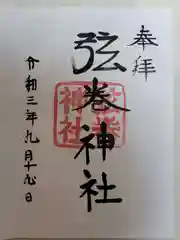 奉拝
弦巻神社
令和三年九月十九日
弦巻
神社